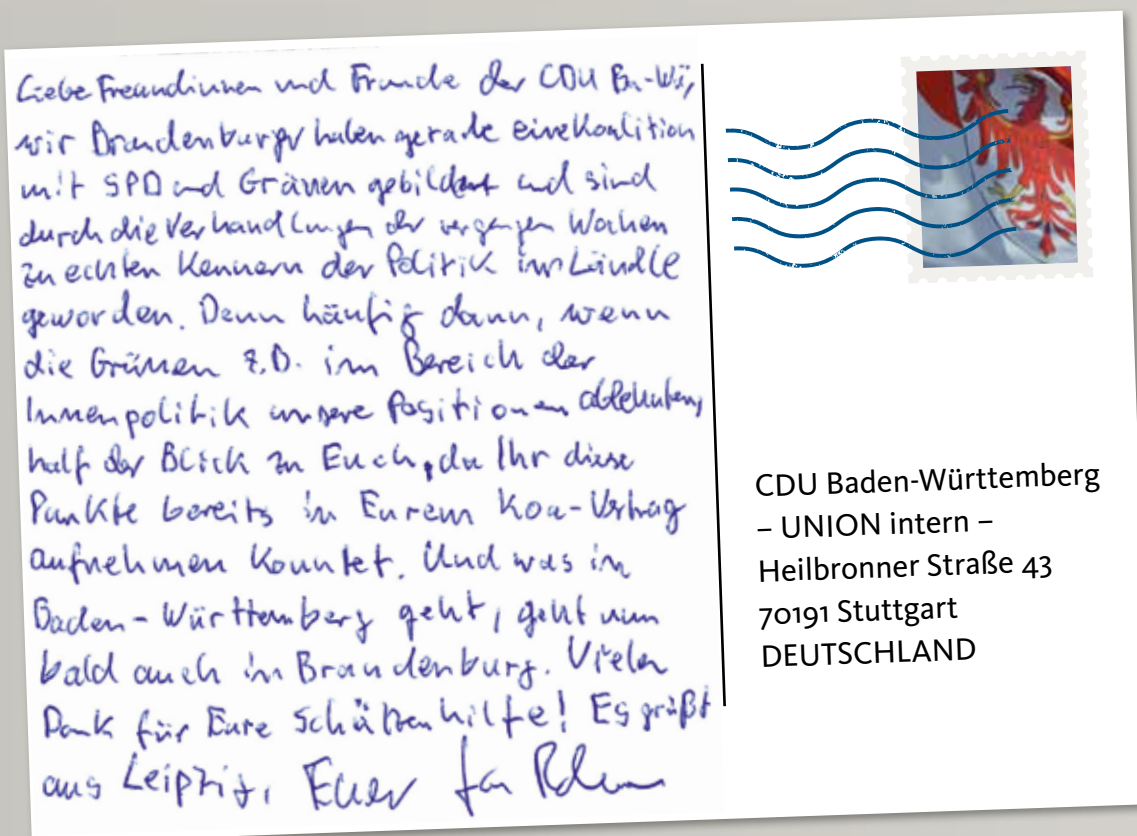 Liebe Freundinnen und Freunde der CDU Ba-Wü,
wir Brandenburger haben gerade eine Koalition
mit SPD und Grünen gebildet und sind
durch die Verhandlungen der vergangen Wochen
zu echten Kennern der Politik im Ländle
geworden. Denn häufig dann, wenn
die Grünen z.B. im Bereich der
Innenpolitik unsere Positionen ablehnten,
half der Blick zu Euch, da Ihr diese
Punkte bereits in Eurem Koa-Vertrag
aufnehmen konntet. Und was in
Baden-Württemberg geht, geht nun
bald auch in Brandenburg. Vielen
Dank für Eure Schützenhilfe! Es grüßt
aus Leipzig, Euer
CDU Baden-Württemberg
– UNION intern –
Heilbronner Straße 43
70191 Stuttgart
DEUTSCHLAND